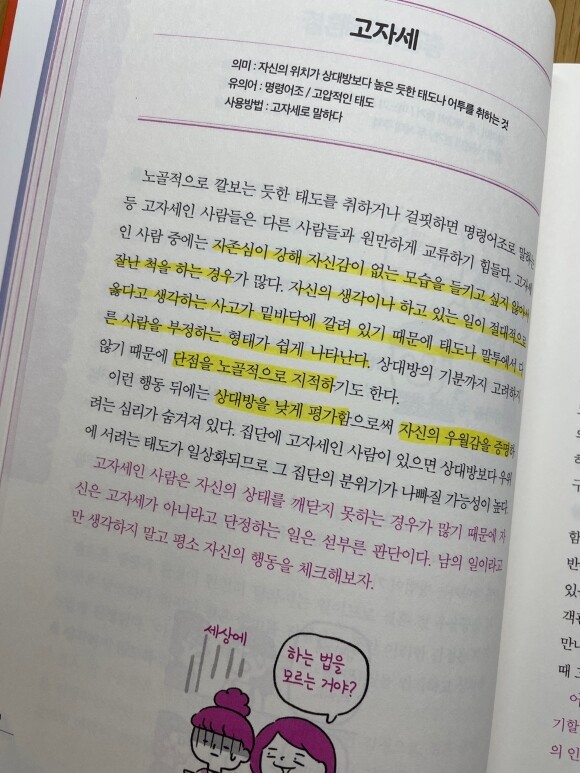 고자세
의미 : 자신의 위치가 상대방보다 높은 듯한 태도나 어투를 취하는 것
유의어 : 명령어조 / 고압적인 태도
사용방법 : 고자세로 말하다
노골적으로 깔보는 듯한 태도를 취하거나 걸핏하면 명령어조로 말하는
등 고자세인 사람들은 다른 사람들과 원만하게 교류하기 힘들다. 고자세
인 사람 중에는 자존심이 강해 자신감이 없는 모습을 들키고 싶지 않아서
잘난 척을 하는 경우가 많다. 자신의 생각이나 하고 있는 일이 절대적으로
옳다고 생각하는 사고가 밑바닥에 깔려 있기 때문에 태도나 말투에서 다
른 사람을 부정하는 형태가 쉽게 나타난다. 상대방의 기분까지 고려하지
않기 때문에 단점을 노골적으로 지적하기도 한다.
이런 행동 뒤에는 상대방을 낮게 평가함으로써 자신의 우월감을 증명하
려는 심리가 숨겨져 있다. 집단에 고자세인 사람이 있으면 상대방보다 우위
에 서려는 태도가 일상화되므로 그 집단의 분위기가 나빠질 가능성이 높다.
고자세인 사람은 자신의 상태를 깨닫지 못하는 경우가 많기 때문에 자
신은 고자세가 아니라고 단정하는 일은 섣부른 판단이다. 남의 일이라고
만 생각하지 말고 평소 자신의 행동을 체크해보자.
세상에
하는 법을
모르는 거야?
구
함
반
있
객
만나
때
어
기할
의 인